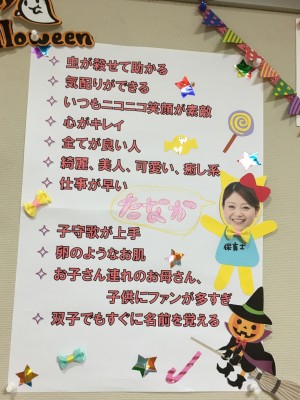 lloween
✧ 虫が殺せて助かる
✧ 気配りができる
✧ いつもニコニコ笑顔が素敵
✧ 心がキレイ
✧ 全てが良い人
✧ 綺麗、美人、可愛い、癒し系
✧ 仕事が早い
たなか
✧ 子守歌が上手
保育士
✧ 卵のようなお肌
✧ お子さん連れのお母さん、
子供にファンが多すぎ
✧ 双子でもすぐに名前を覚える